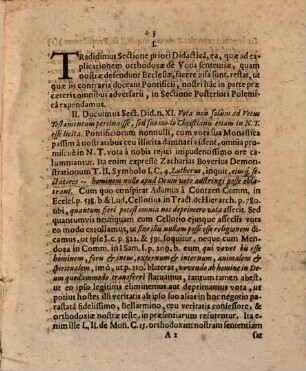 3
I.
TRadidimus Sectione priori Didacticâ, ea, quæ ad explicationem
orthodoxæ de Votis sententiæ, quam
nostræ defendunt Ecclesiæ, facere visa sunt, restat, ut
quæ in contraria doceant Pontificii, nostri hâc in parte præ
cæteris omnibus adversarii, in Sectione Posteriori Polemicâ
expendamus.
II. Documus Sect. Did. n. XI. Vota non solùm ad Vetus
Testamentum pertinuisse, sed suo modo Christianis etiam in N. T.
esse licita. Pontificiorum nonnulli, cum vota sua Monastica
passim à nostratibus ceu illicita damnari vident, omnia promiscuè
in N. T. vota à nobis rejici impudentissimo ore calumniantur.
Ita enim expressè Zacharias Boverius Demonstrationum
T. II. Symbolo I. C. 4. Lutherus, inquit, ejusq; sectatores
-- hominem nulla apud Deum voto astringi posse oblaterant.
Cum quo conspirat Adamus à Contzen Comm. in
Eccles. p. 538. b. & Lud. Cellotius in Tract. de Hierarch. p. 780.
ubi, quantum fieri potest omnia nos deprimere vota asserit. Sed
quantumvis neutiquam cum Cellotio ejusque asseclis vota
eo modo extollamus, ut sine iis nullam posse esse religionem dicamus,
ut ipse l. c. p. 521. & 530. loquitur, neque cum Mendoza
in Comm. in I Sam. I. p. 300. b. eum qui vovet bis esse
hominem, foris & intus, externum & internum, animalem &
spiritualem, imò, ut p. 110. blaterat, vovendo ab homine in Deum
quodammodo transferri statuamus, tantum tamen abest,
ut eo ipso legitima eliminemus aut deprimamus vota, ut
potius hostes illi veritatis ab ipso suo alias in hoc negotio parastatâ
fidelissimo, Bellarmino, ceu veritatis confessore, &
orthodoxiæ nostræ teste, in præsentiarum refutentur. Ita enim
ille L. II. de Mon. C. 15. orthodoxam nostram sententiam
A 2 fat